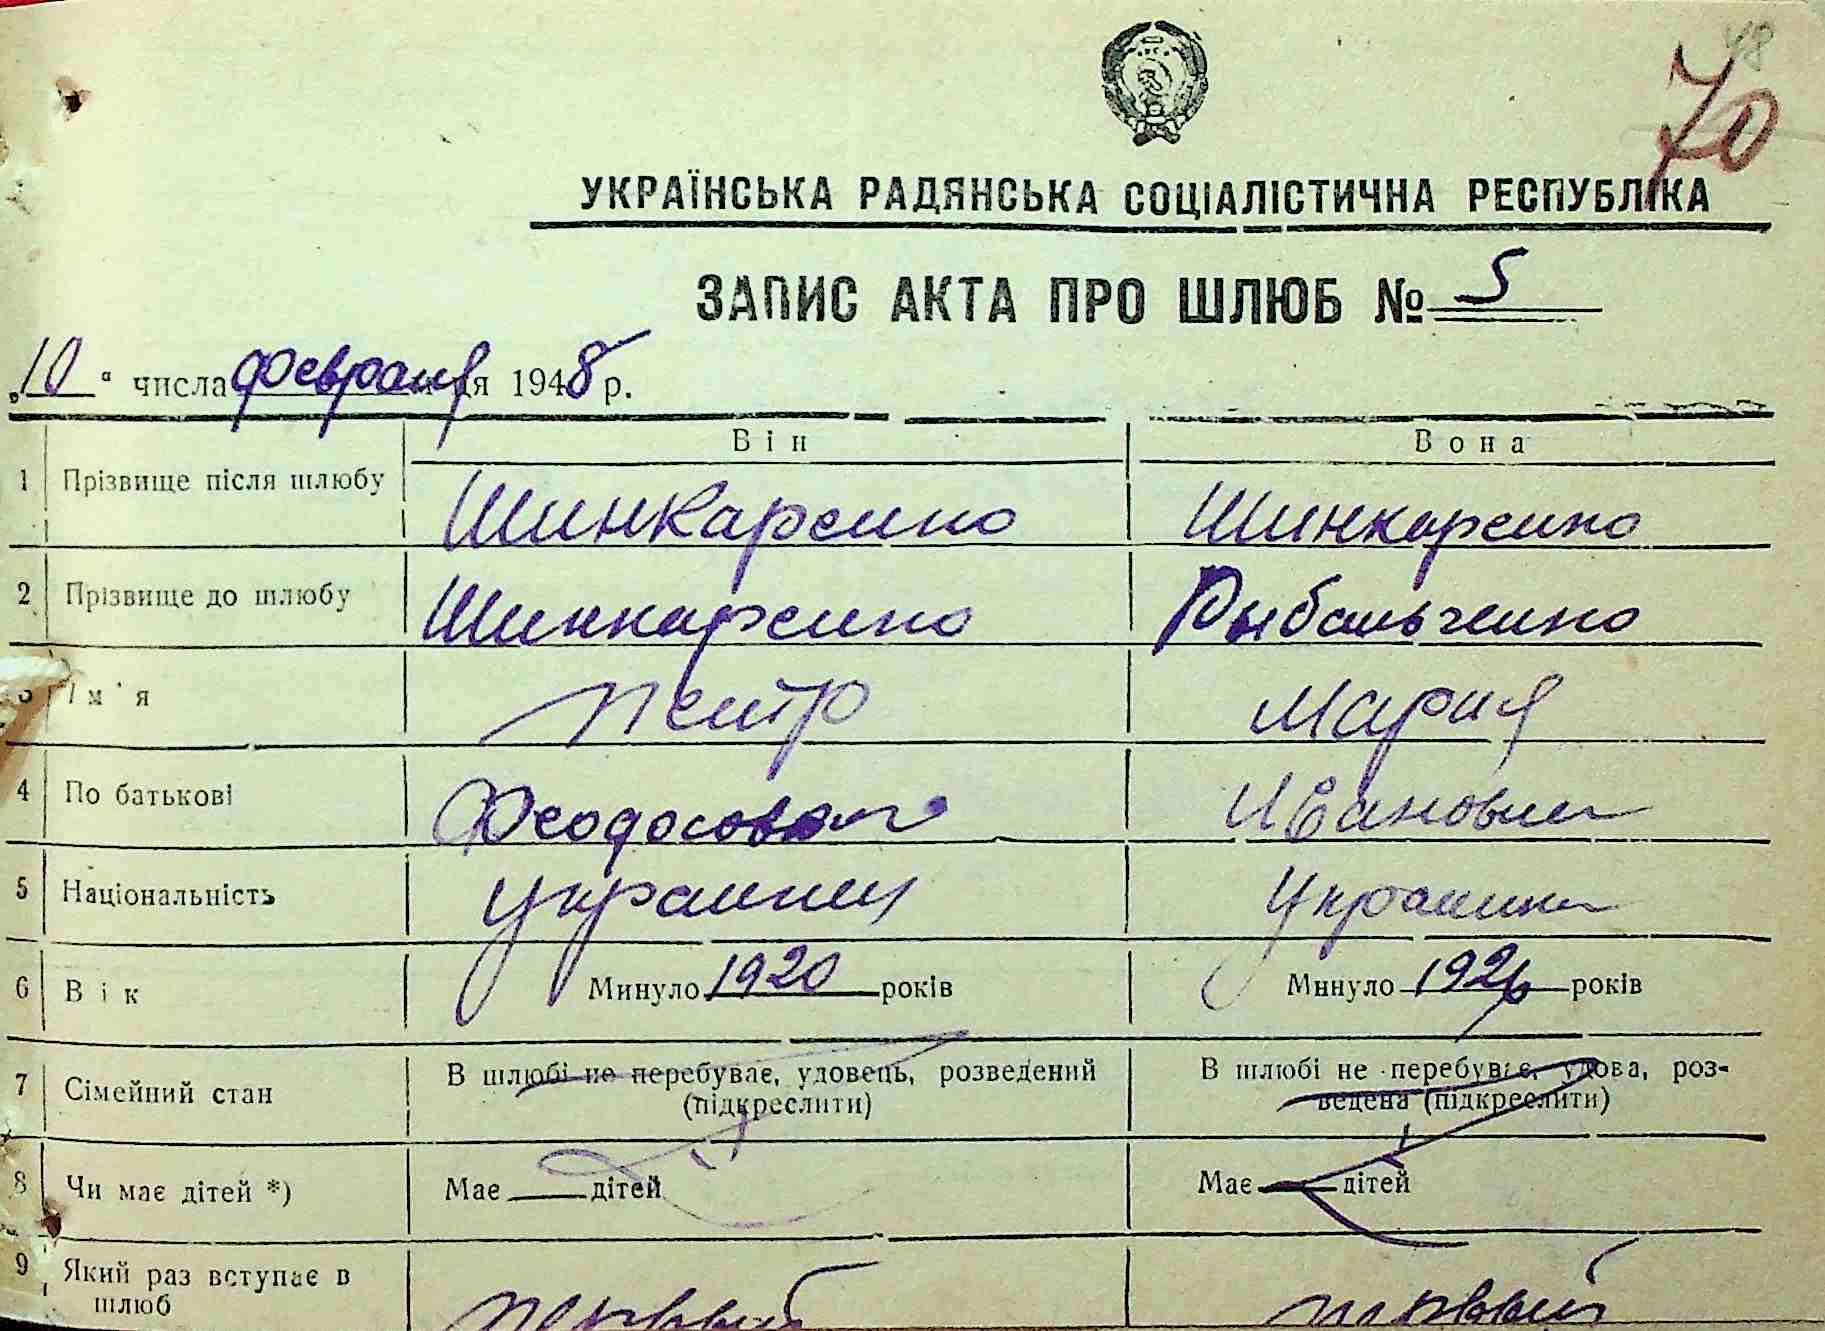 48
70
УКРАЇНСЬКА РАДЯНСЬКА СОЦІАЛІСТИЧНА РЕСПУБЛІКА
ЗАПИС АКТА ПРО ШЛЮБ № 5
„10“ числа февраля 1948 р.
Він Вона
1 Прізвище після шлюбу Шинкаренко Шинкаренко
2 Прізвище до шлюбу Шинкаренко Рыбальченко
3 Ім'я Петр Мария
4 По батькові Ивановна
5 Національність украинец Украинка
6 Вік Минуло 1920 років Минуло 1926 років
7 Сімейний стан В шлюбі не перебуває, удовець, розведений (підкреслити) В шлюбі не перебуває, удова, роз-
ведена (підкреслити)
8 Чи має дітей *) Має дітей Має дітей
9 Який раз вступає в
шлюб первый первый